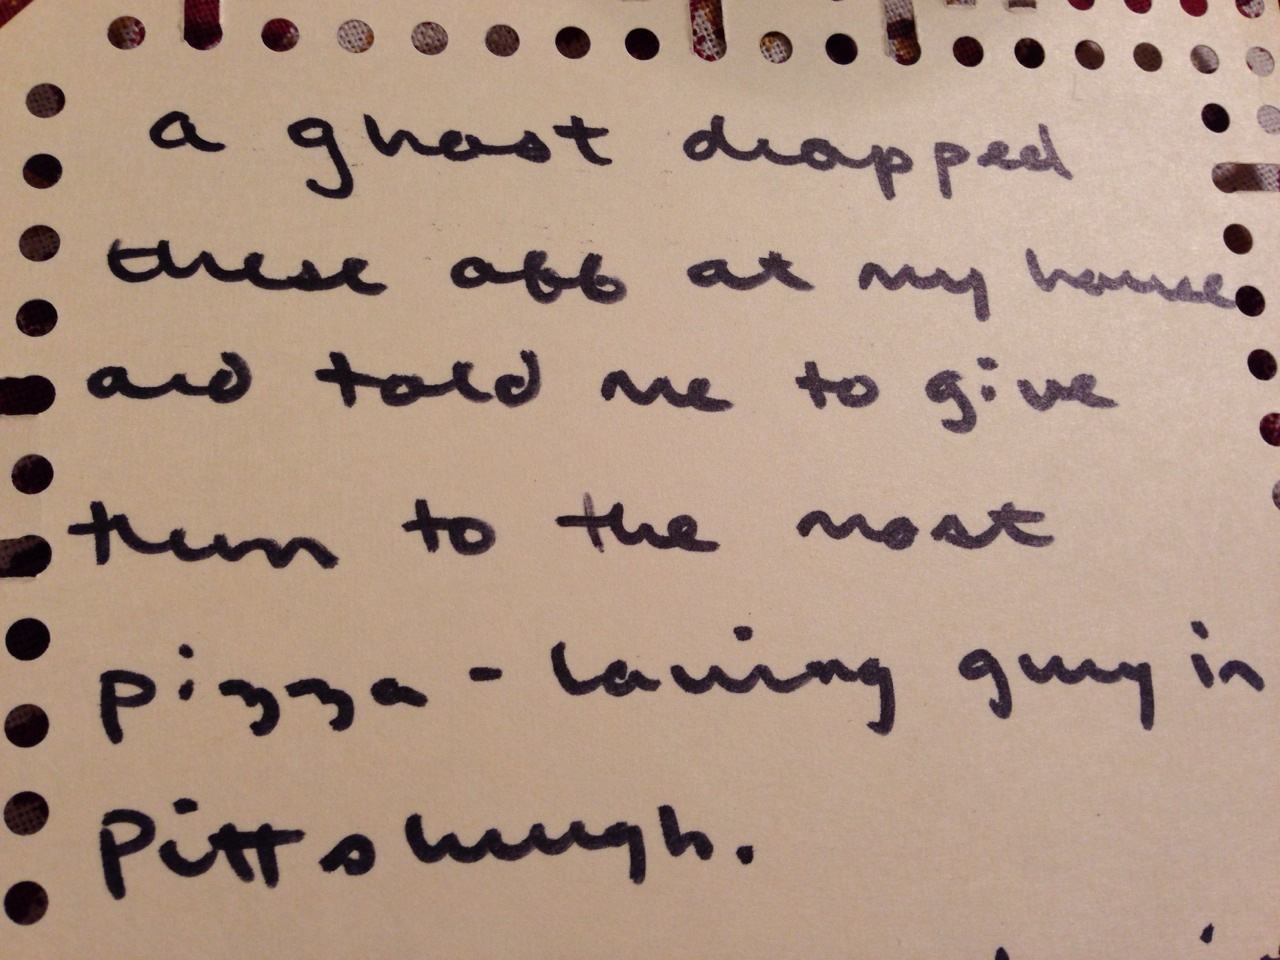 a ghost dropped
these off at my house
and told me to give
them to the most
pizza-loving guy in
Pittsburgh.